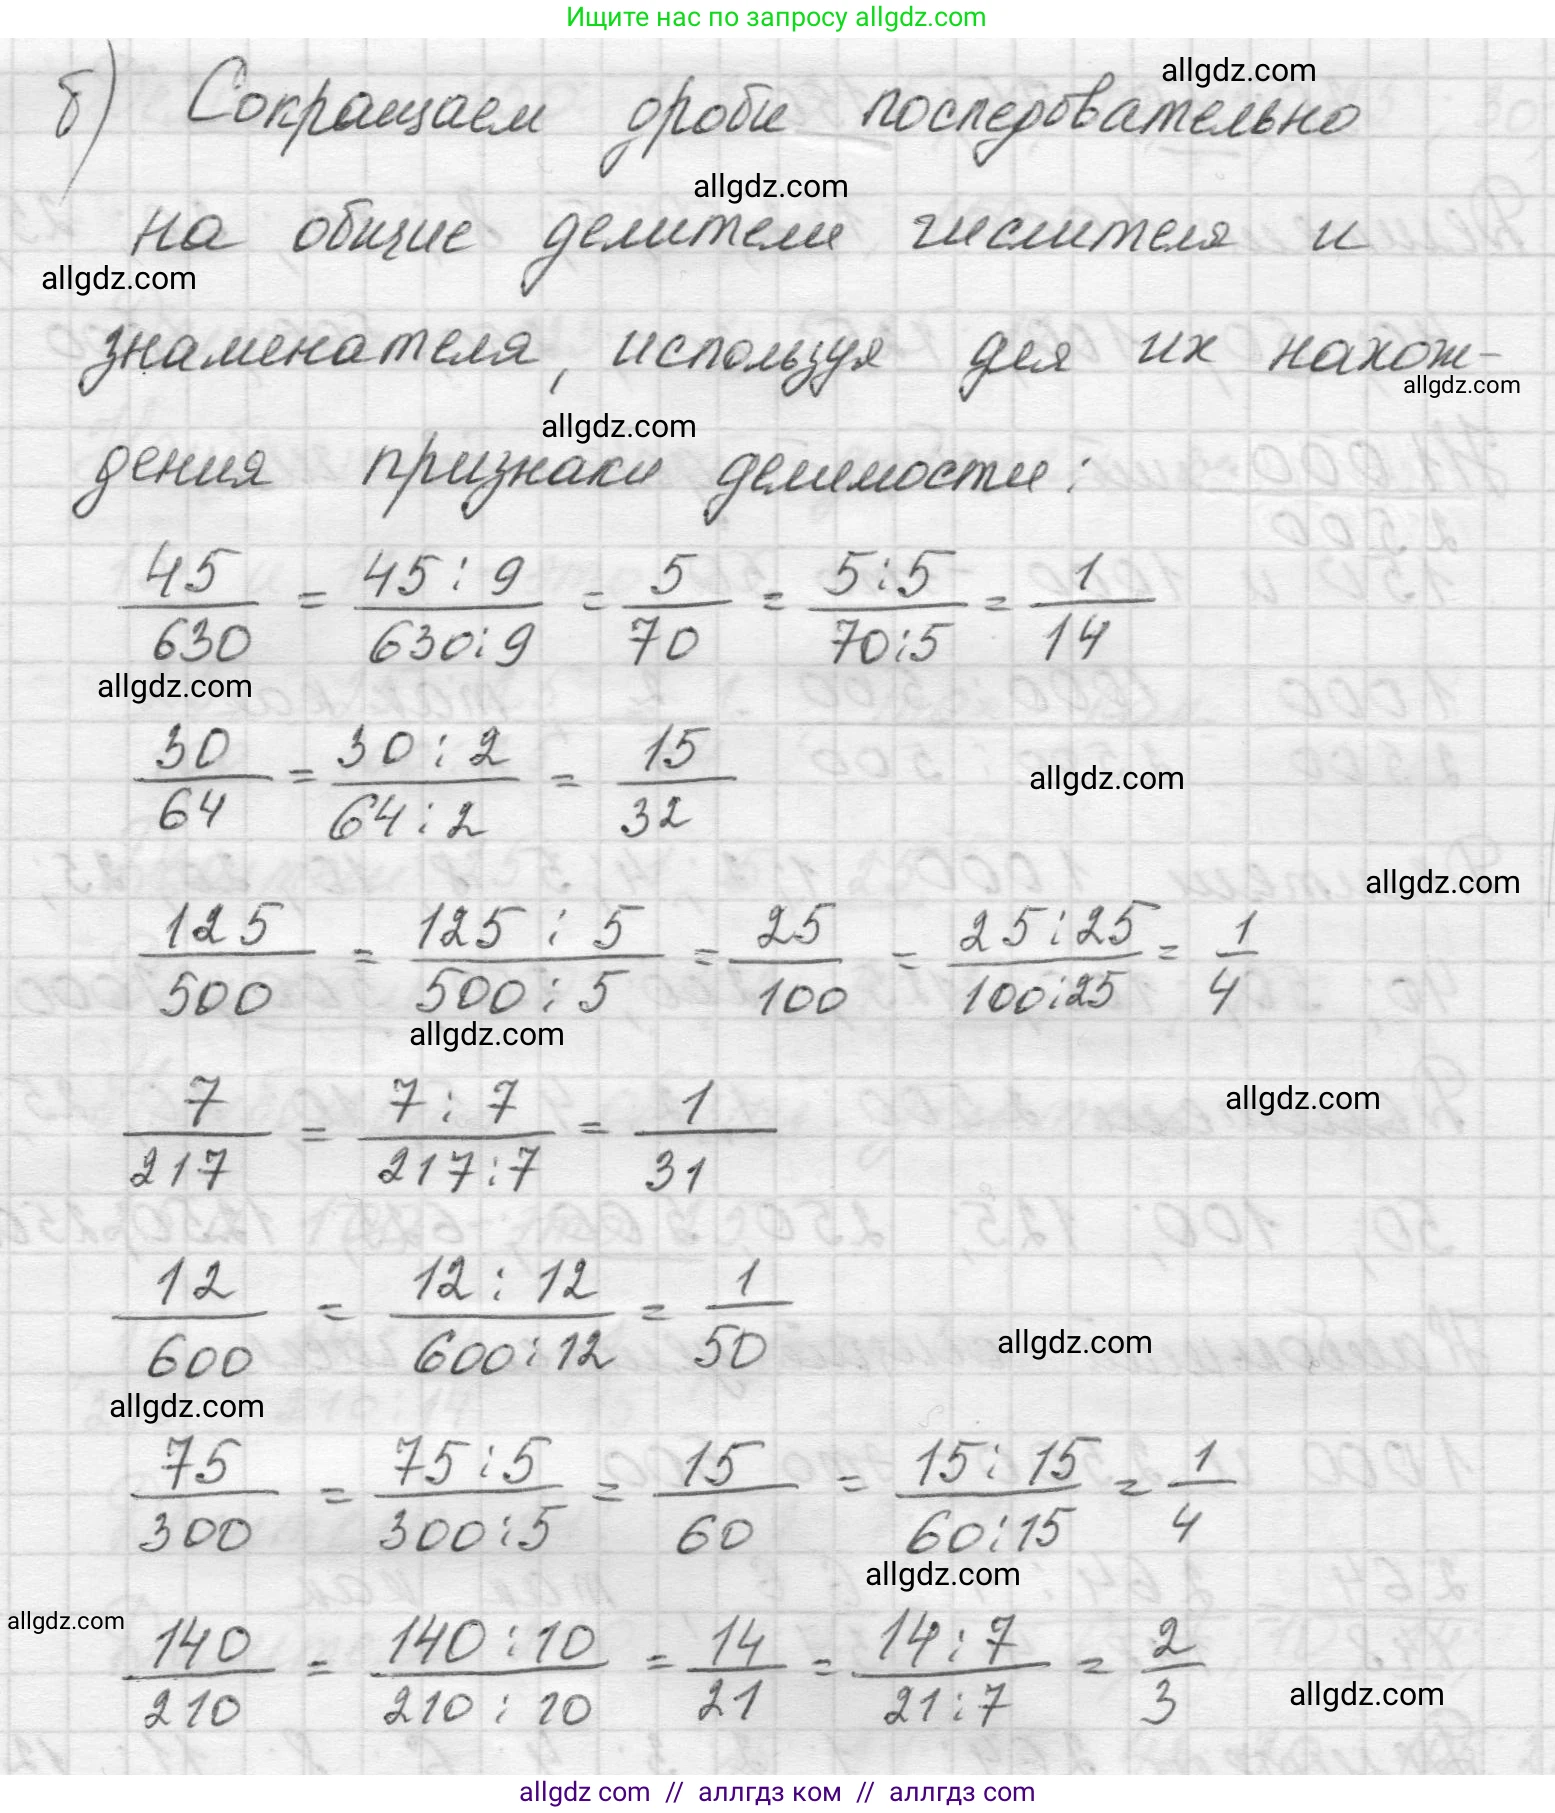 Ищите нас по запросу allgdz.com
allgdz.com
б) Сокращаем дроби последовательно
allgdz.com
на общие делители числителя и
allgdz.com
знаменателя, используя для их нахож-
allgdz.com
allgdz.com
дения признаки делимости:
45/630 = 45:9/630:9 = 5/70 = 5:5/70:5 = 1/14
allgdz.com
30/64 = 30:2/64:2 = 15/32
allgdz.com
allgdz.com
125/500 = 125:5/500:5 = 25/100 = 25:25/100:25 = 1/4
allgdz.com
7/217 = 7:7/217:7 = 1/31
allgdz.com
12/600 = 12:12/600:12 = 1/50
allgdz.com
allgdz.com
75/300 = 75:5/300:5 = 15/60 = 15:15/60:15 = 1/4
allgdz.com
allgdz.com
140/210 = 140:10/210:10 = 14/21 = 14:7/21:7 = 2/3
allgdz.com
allgdz.com // аллгдз ком // аллгдз com